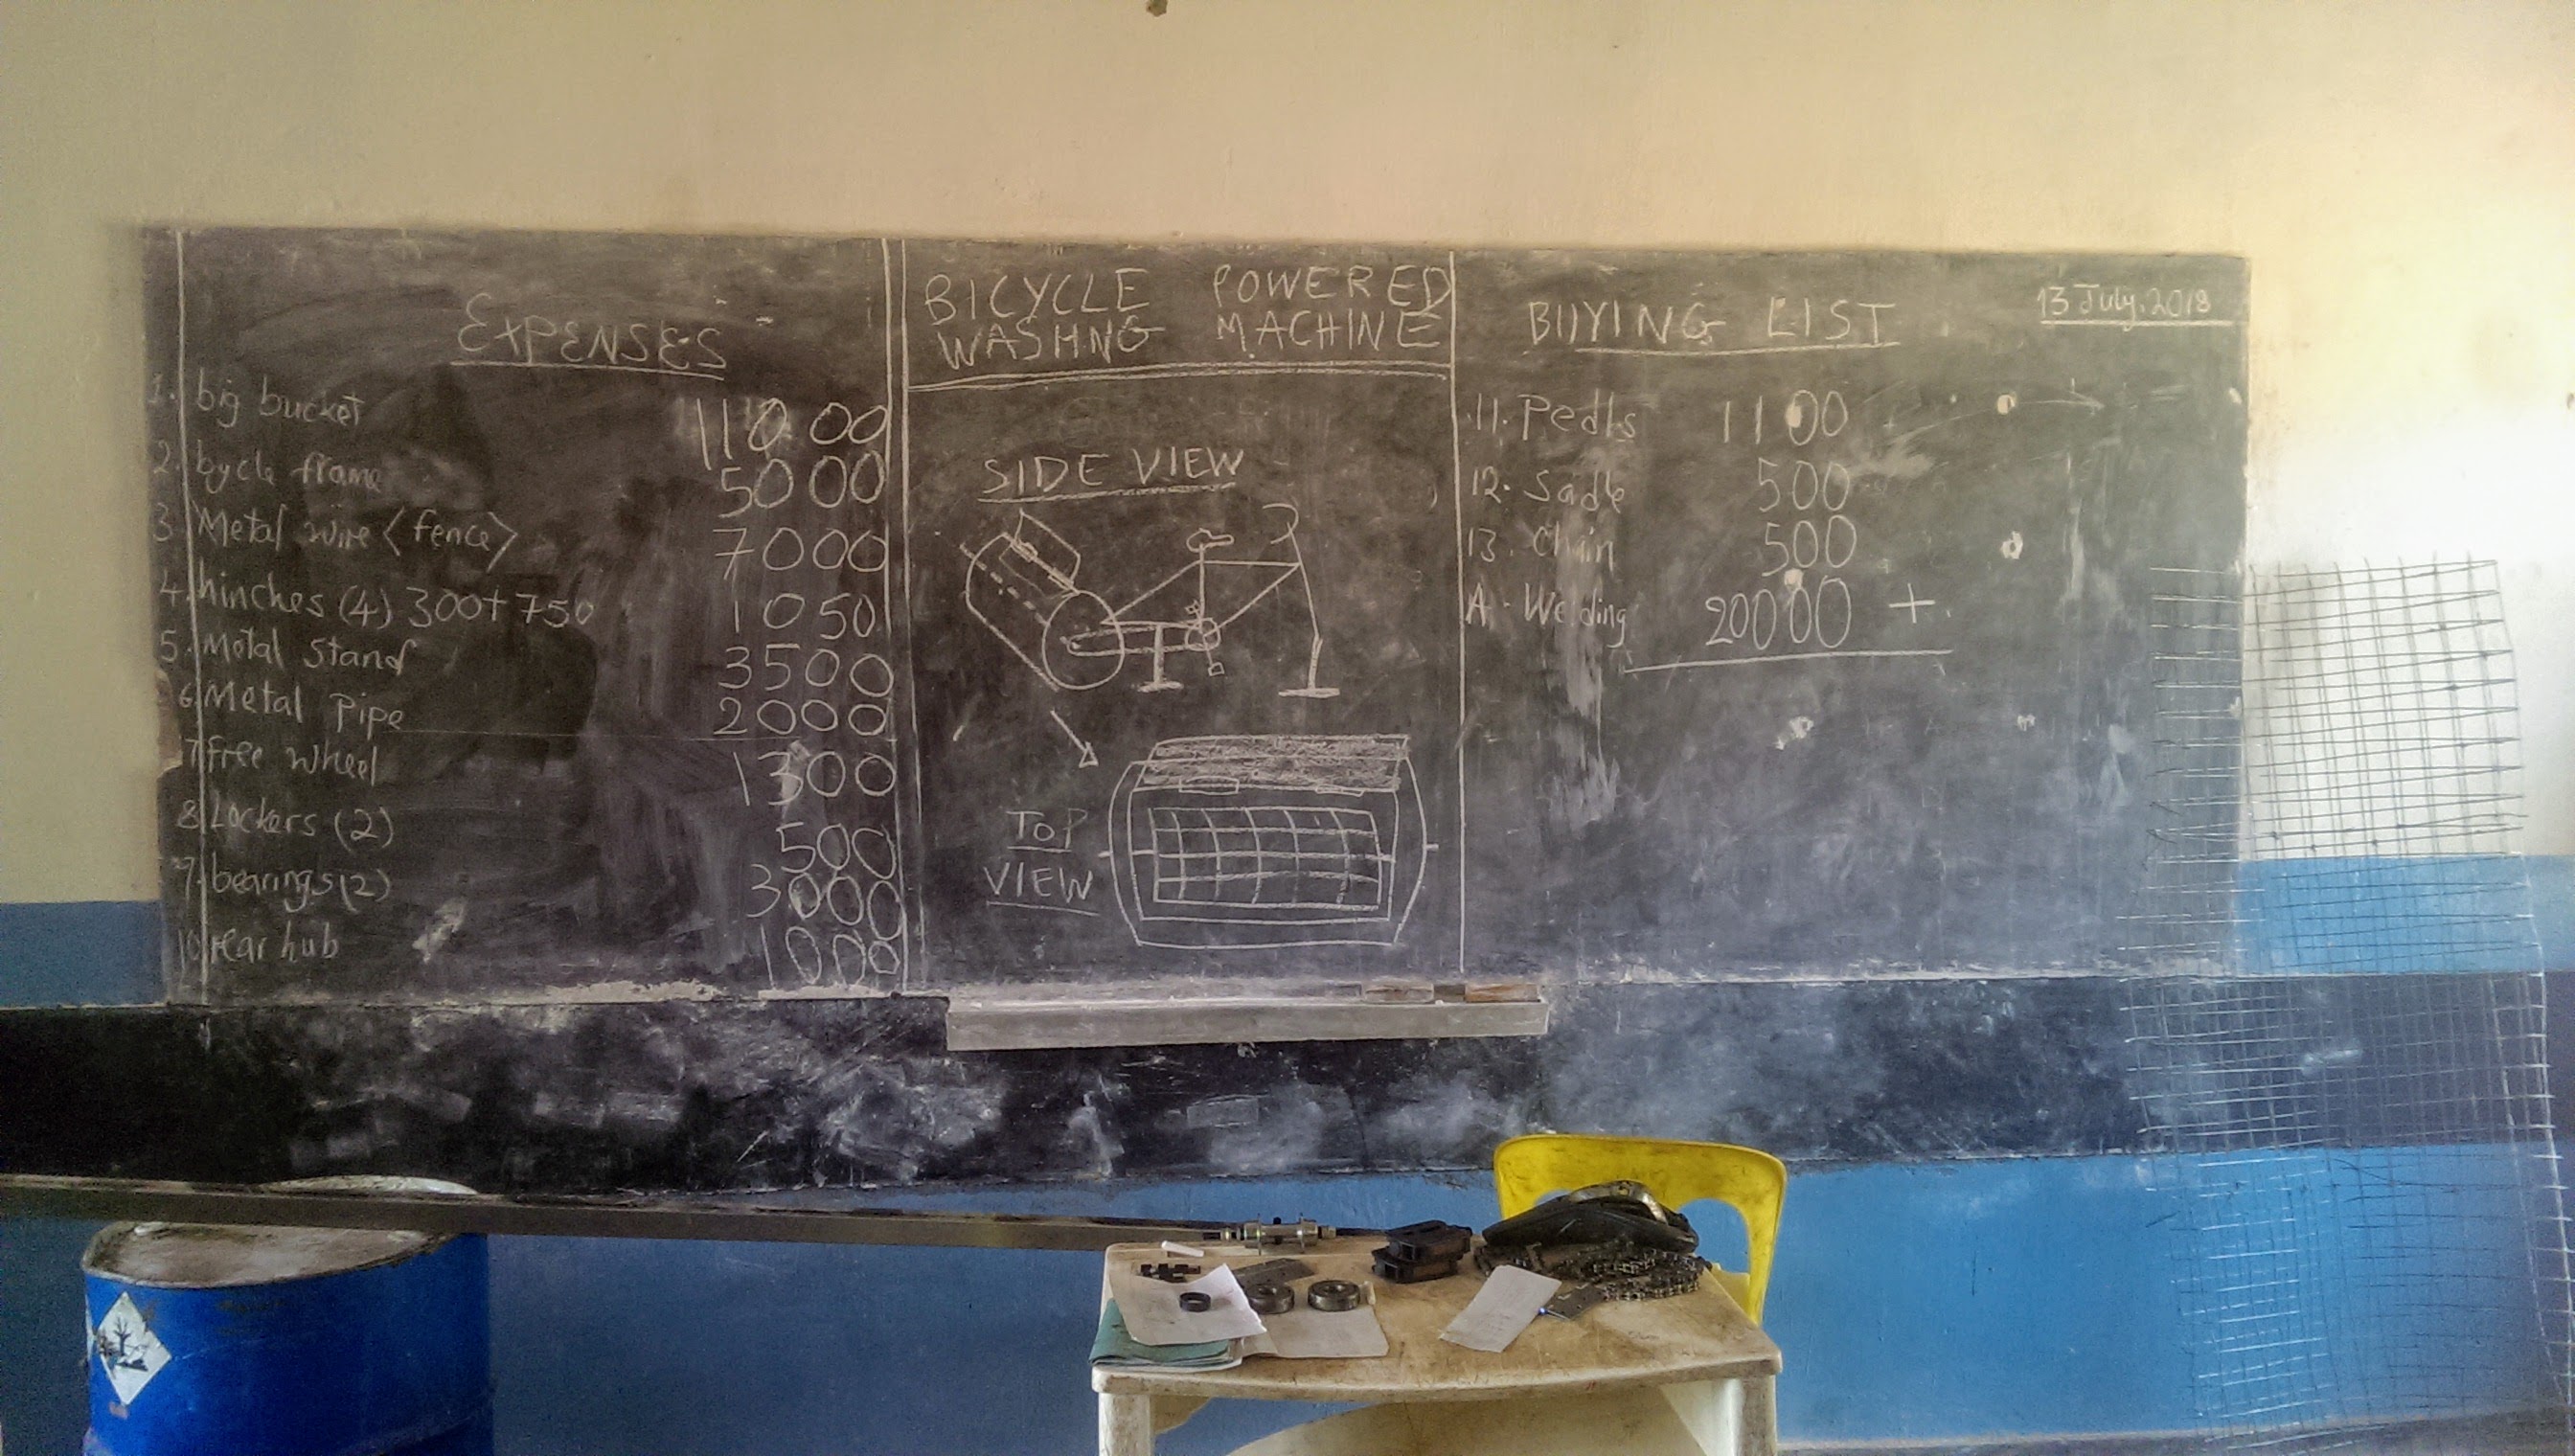 EXPENSES
1. big bucket 11000
2. bycle frame 5000
3. Metal wire <fence> 7000
4. hinches (4) 300+750 1050
5. Motal Stand 3500
6. Metal Pipe 2000
7 free wheel 1300
8 Lockers (2) 500
9. bearings (2) 3000
10 rear hub 1000
BICYCLE POWERED
WASHNG MACHINE
SIDE VIEW
TOP
VIEW
BUYING LIST
13 July, 2018
11. Pedls 1100
12. Sadle 500
13. Chain 500
A. Welding 20000 +